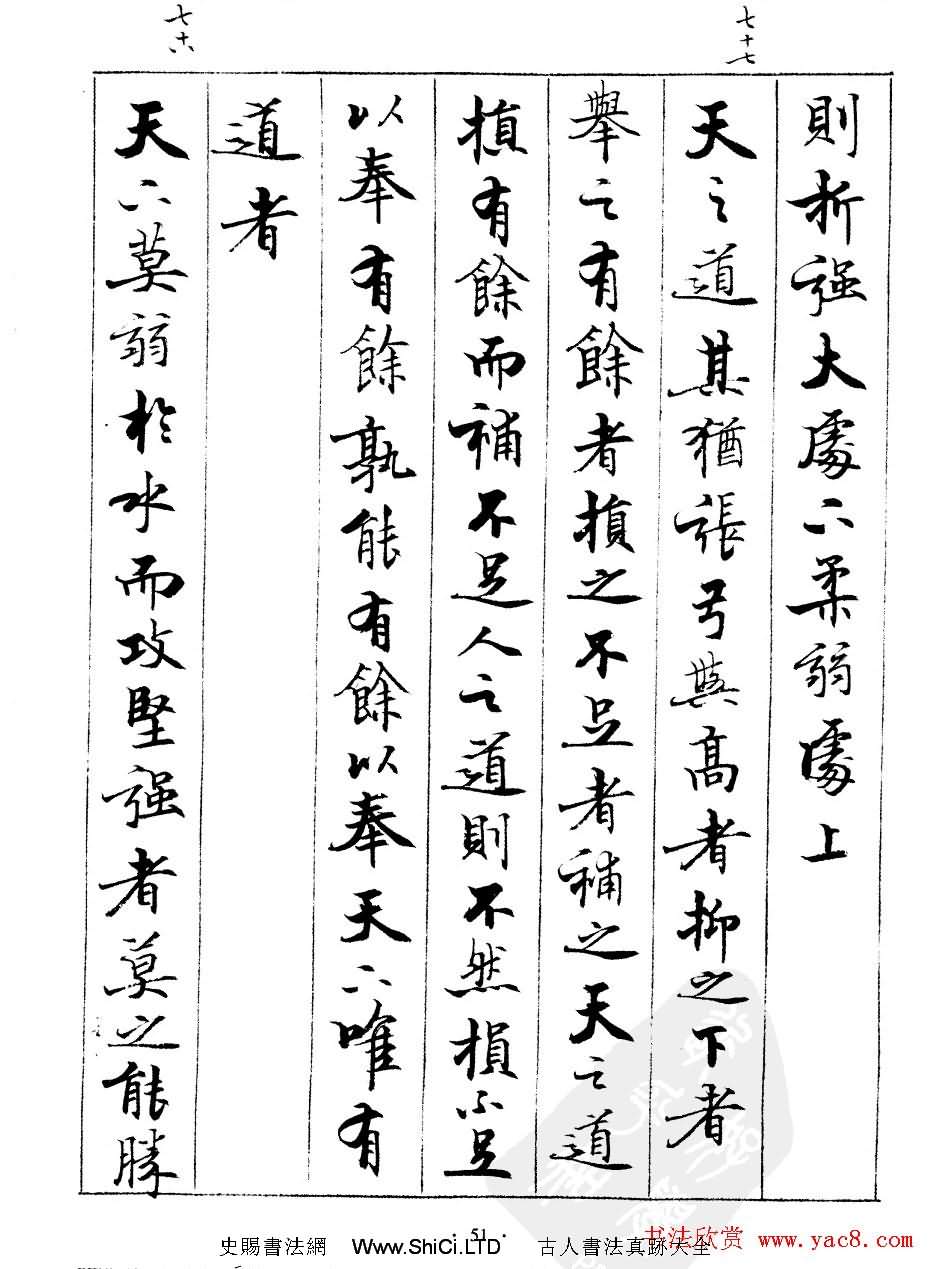 七十七
七十八
則折强大處下柔弱處上
天之道其猶張弓與高者抑之下者
舉之有餘者損之不足者補之天之道
損有餘而補不足人之道則不然損不足
以奉有餘孰能有餘以奉天下唯有
道者
天下莫弱於水而攻堅强者莫之能勝
· 51 ·
书法欣赏 www.yac8.com
史賜書法網 Www.ShiCi.LTD 古人書法真跡大全